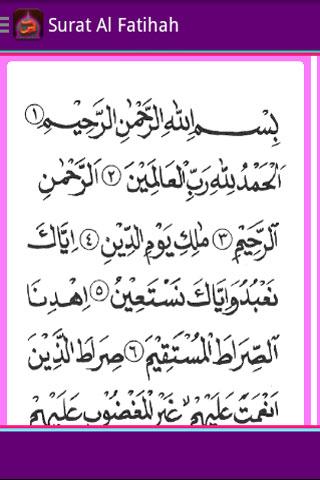 Surat Al Fatihah
بِسْمِ اللهِ الرَّحْمٰنِ الرَّحِيْمِ ۝١
اَلْحَمْدُ لِلّٰهِ رَبِّ الْعَالَمِيْنَ ۝٢ اَلرَّحْمٰنِ
الرَّحِيْمِ ۝٣ مٰلِكِ يَوْمِ الدِّيْنِ ۝٤ اِيَّاكَ
نَعْبُدُ وَاِيَّاكَ نَسْتَعِيْنُ ۝٥ اِهْدِنَا
الصِّرَاطَ الْمُسْتَقِيْمَ ۝٦ صِرَاطَ الَّذِيْنَ
اَنْعَمْتَ عَلَيْهِمْ غَيْرِ الْمَغْضُوْبِ عَلَيْهِمْ